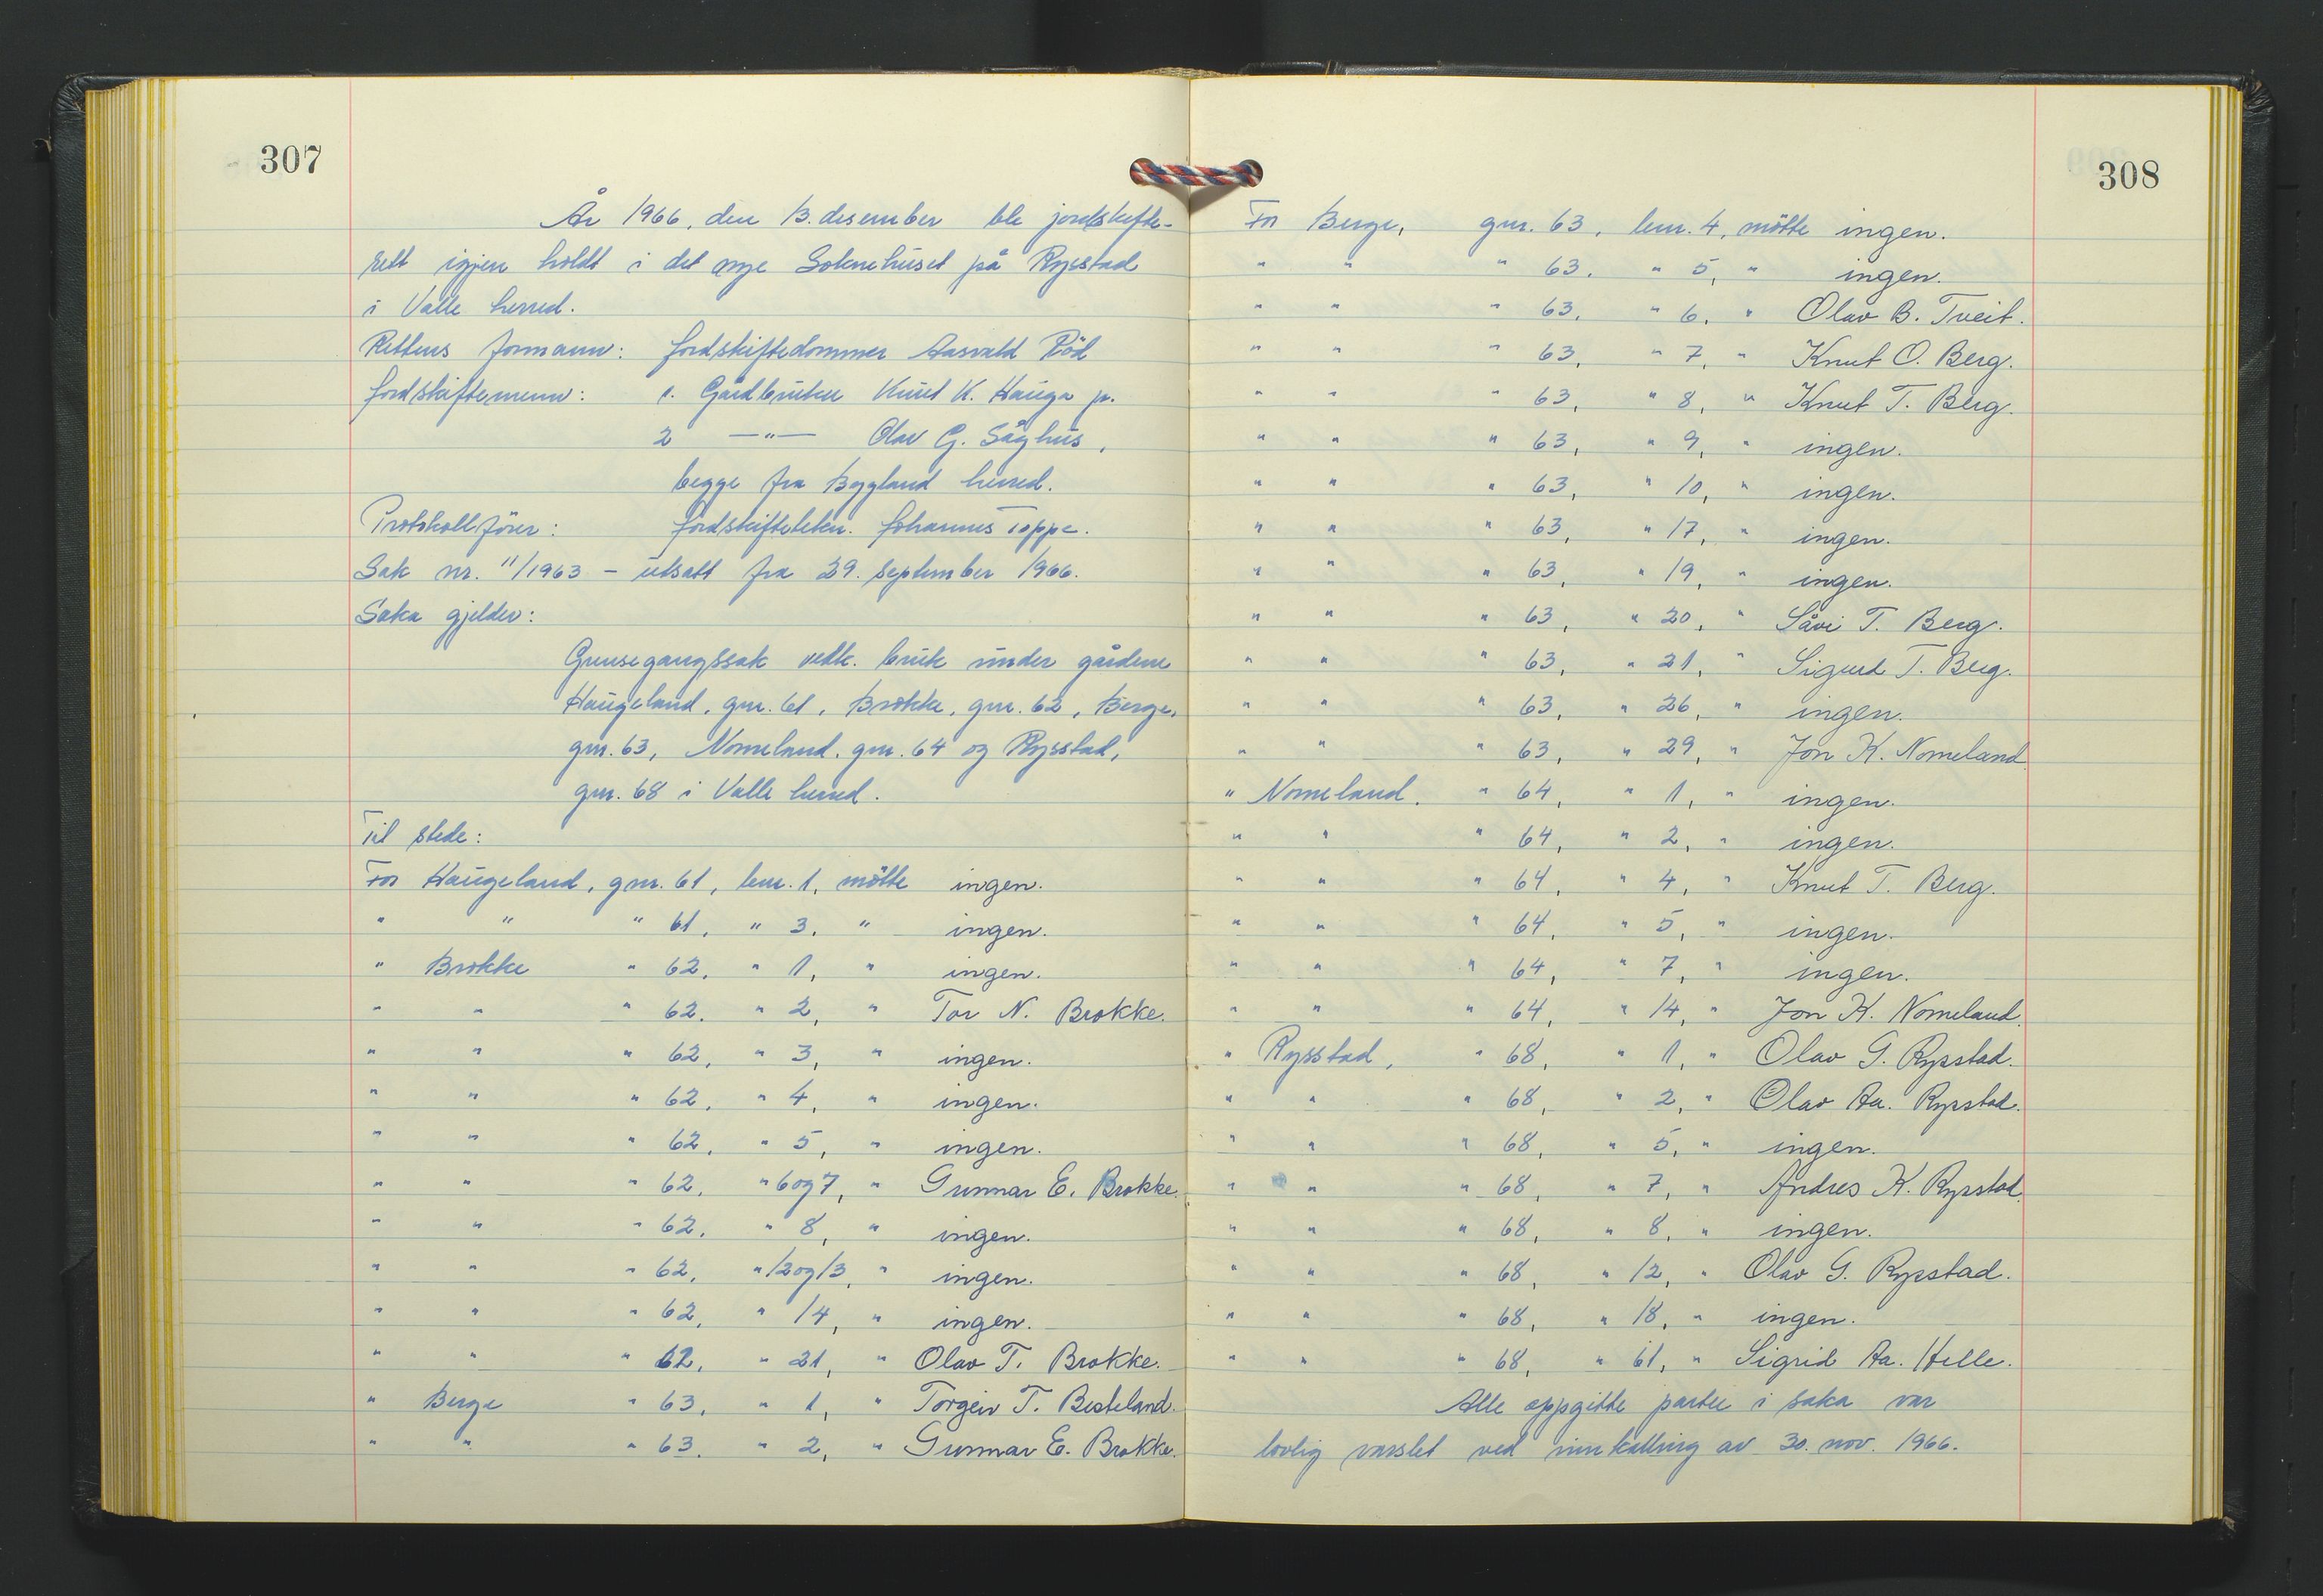 307
År 1966, den 13. desember ble jordskifte-
rett igjen holdt i det nye Soknehuset på Rysstad
i Valle herred.
Rettens formann: Jordskiftedommer Aasvald Röd
Jordskiftemenn: 1. Gårdbruker Knut K. Hauga jr.
2 —"— Olav G. Såghus,
begge fra Bygland herred.
Protokollförer: Jordskiftetekn. Johannes Toppe.
Sak nr. 11/1963 - utsatt fra 29. september 1966.
Saka gjelder:
Grensegangssak vedk. bruk under gårdene
Haugeland, gnr. 61, Brokke, gnr. 62, Berge,
gnr. 63, Nomeland, gnr. 64 og Rysstad,
gnr. 68 i Valle herred.
Til stede:
For Haugeland, gnr. 61, bnr. 1, mötte ingen.
" " " 61, " 3, " ingen.
" Brokke " 62, " 1, " ingen.
" " " 62. " 2, " Tor N. Brokke.
" " " 62, " 3, " ingen.
" " " 62, " 4, " ingen.
" " " 62, " 5, " ingen.
" " " 62, " 6 og 7, " Gunnar E. Brokke.
" " " 62, " 8, " ingen.
" " " 62, " 12 og 13, " ingen.
" " " 62, " 14, " ingen.
" " " 62, " 21, " Olav T. Brokke.
" Berge " 63, " 1, " Torgeiv T. Besteland.
" " " 63. " 2, " Gunnar E. Brokke.
308
For Berge, gnr. 63, bnr. 4, mötte ingen.
" " " 63. " 5, " ingen.
" " " 63, " 6, " Olav B. Tveit.
" " " 63, " 7, " Knut O. Berg.
" " " 63, " 8, " Knut T. Berg.
" " " 63, " 9, " ingen.
" " " 63, " 10, " ingen.
" " " 63, " 17, " ingen.
" " " 63, " 19, " ingen.
" " " 63, " 20, " Såvi T. Berg.
" " " 63, " 21, " Sigurd T. Berg.
" " " 63, " 26, " ingen.
" " " 63, " 29, " Jon K. Nomeland
" Nomeland. " 64, " 1, " ingen.
" " " 64, " 2, " ingen.
" " " 64, " 4, " Knut T. Berg.
" " " 64, " 5, " ingen.
" " " 64, " 7, " ingen.
" " " 64, " 14, " Jon K. Nomeland.
" Rysstad, " 68, " 1, " Olav G. Rysstad.
" " " 68, " 2, " Olav Aa. Rysstad.
" " " 68, " 5, " ingen.
" " " 68, " 7, " Andres K. Rysstad.
" " " 68, " 8, " ingen.
" " " 68, " 12, " Olav G. Rysstad.
" " " 68, " 18, " ingen.
" " " 68, " 61, " Sigrid Aa. Helle.
Alle oppgitte partee i saka var
lovlig varslet ved innkalling av 30. nov. 1966.